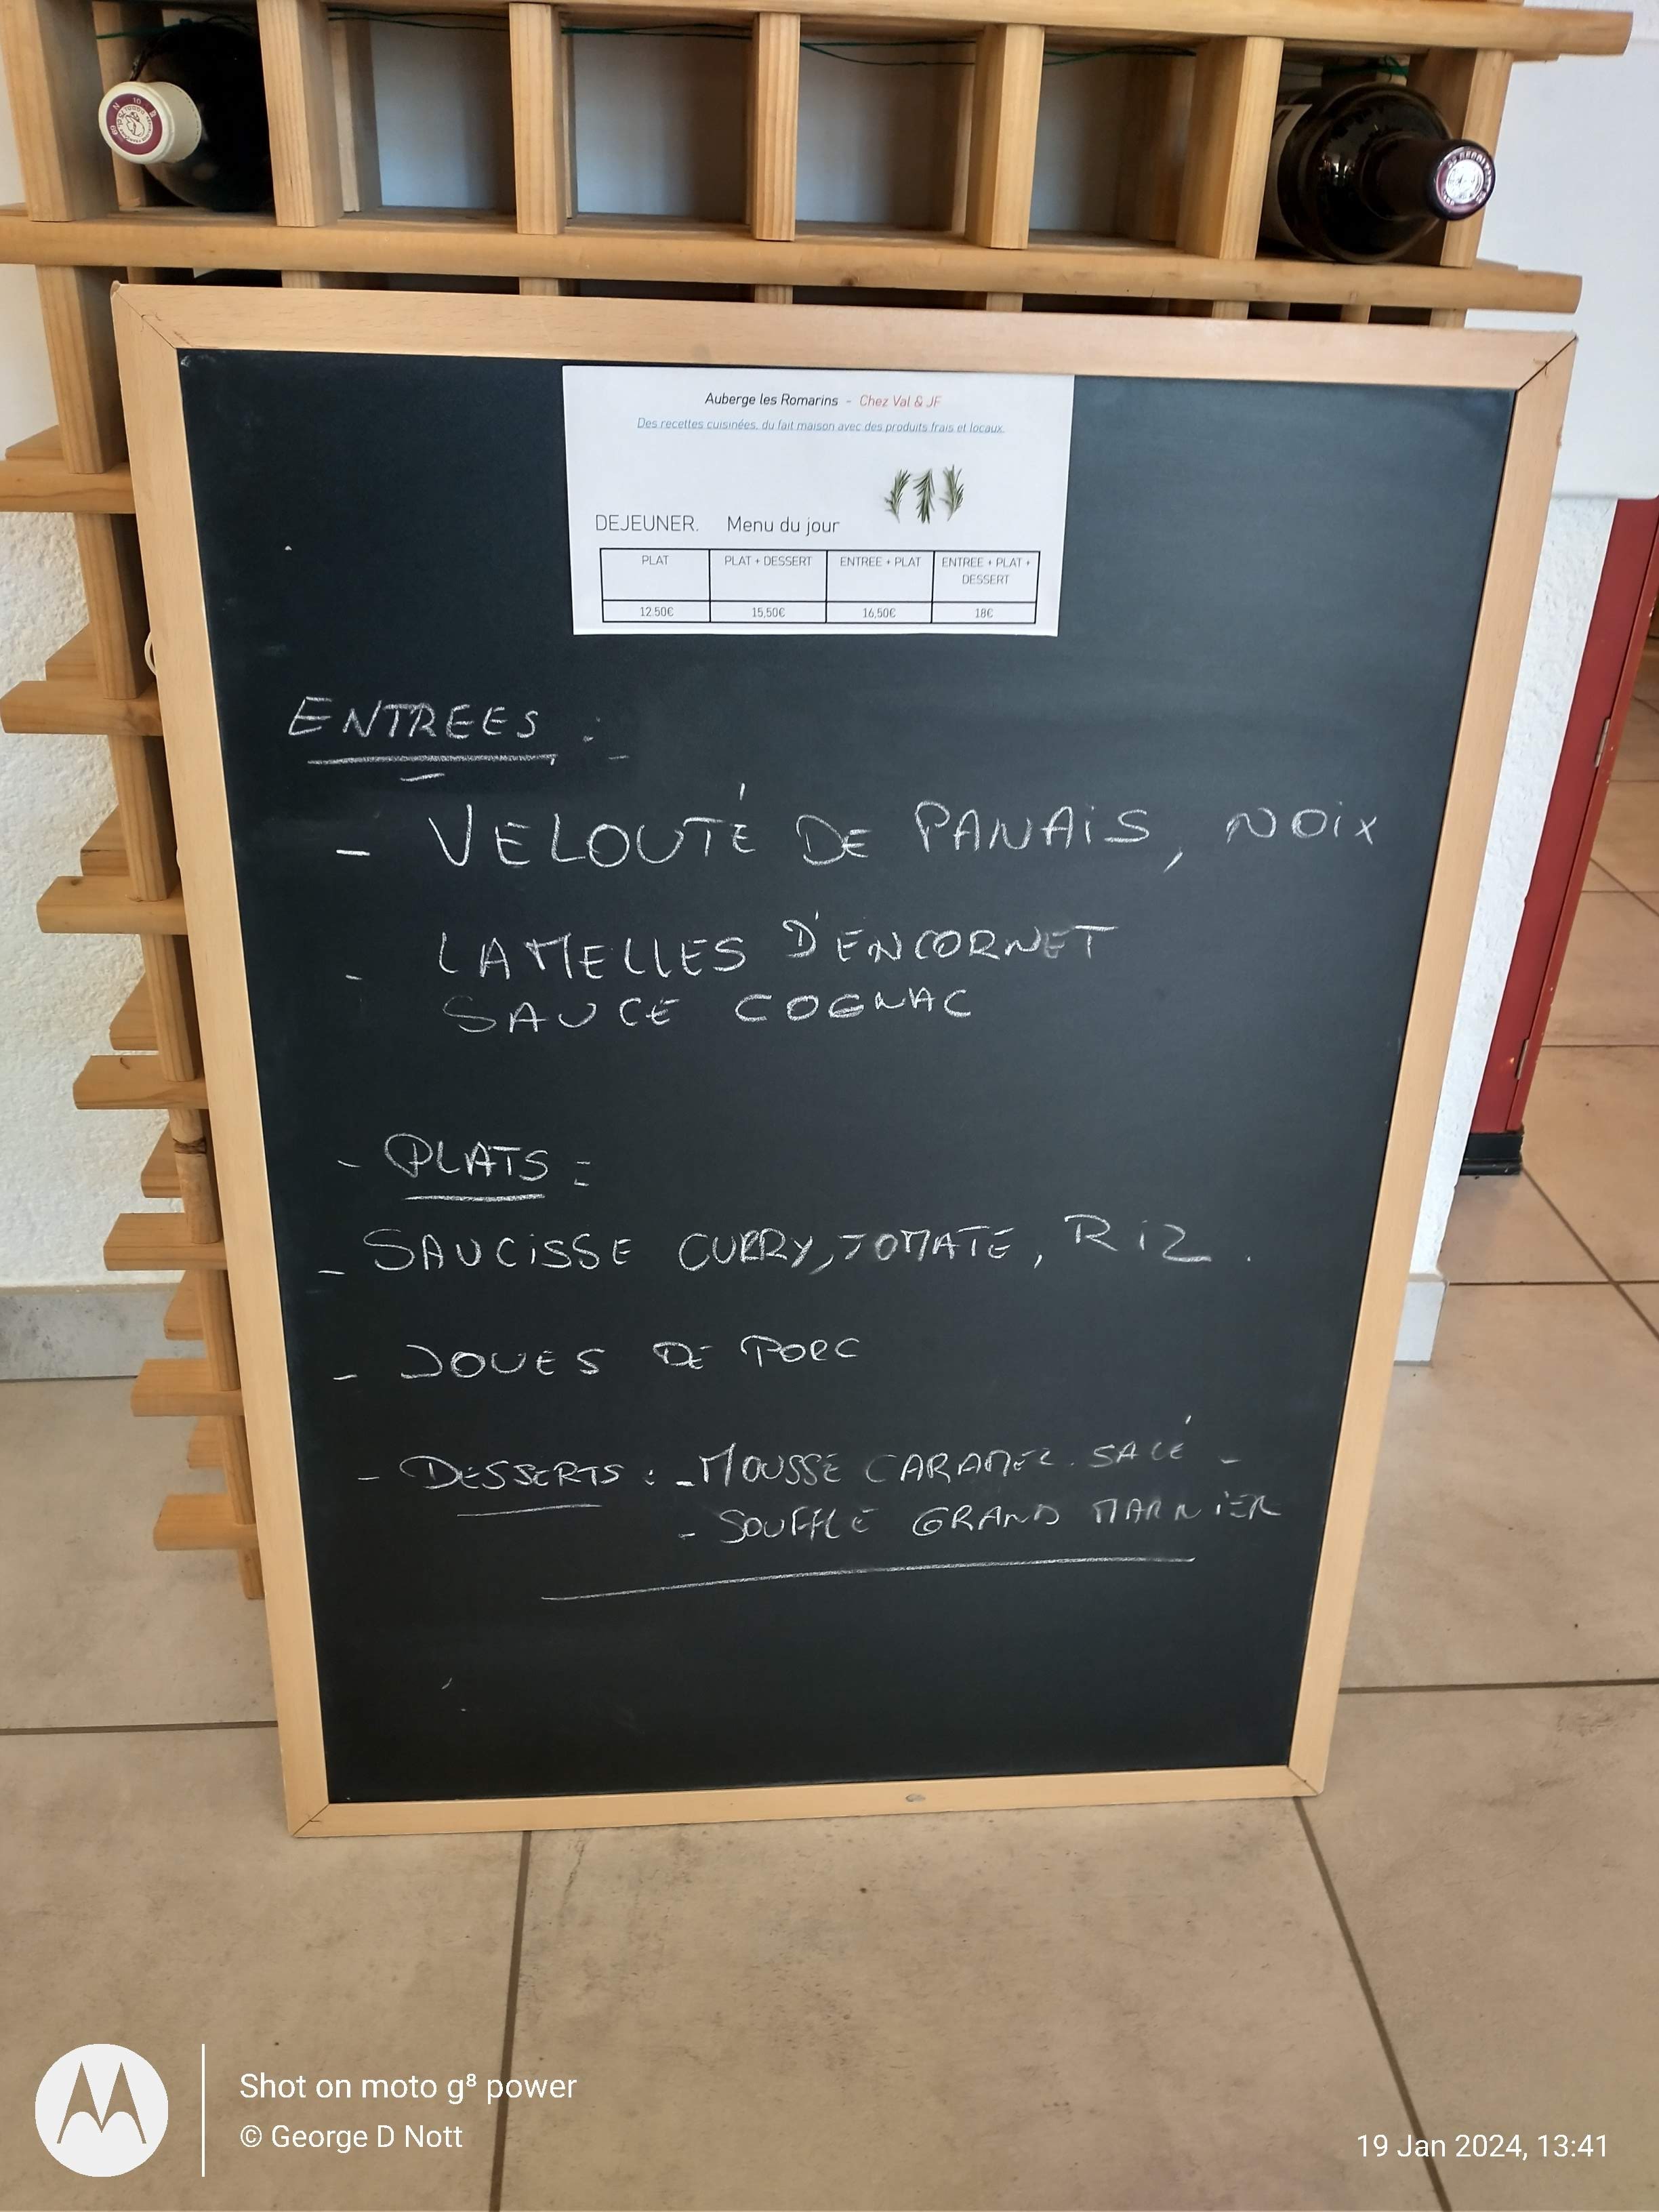 Auberge les Romarins - Chez Val & JF
Des recettes cuisinées, du fait maison avec des produits frais et locaux.
DEJEUNER. Menu du jour
PLAT PLAT + DESSERT ENTREE + PLAT ENTREE + PLAT +
DESSERT
12.50€ 15,50€ 16,50€ 18€
ENTREES :
- VELOUTÉ DE PANAIS, NOIX
- LAMELLES D'ENCORNET
SAUCE COGNAC
- PLATS :
- SAUCISSE CURRY, TOMATE, RIZ.
- JOUES DE PORC
- DESSERTS : - MOUSSE CARAMEL SALÉ -
- SOUFFLE GRAND MARNIER
Shot on moto g⁸ power
© George D Nott
19 Jan 2024, 13:41